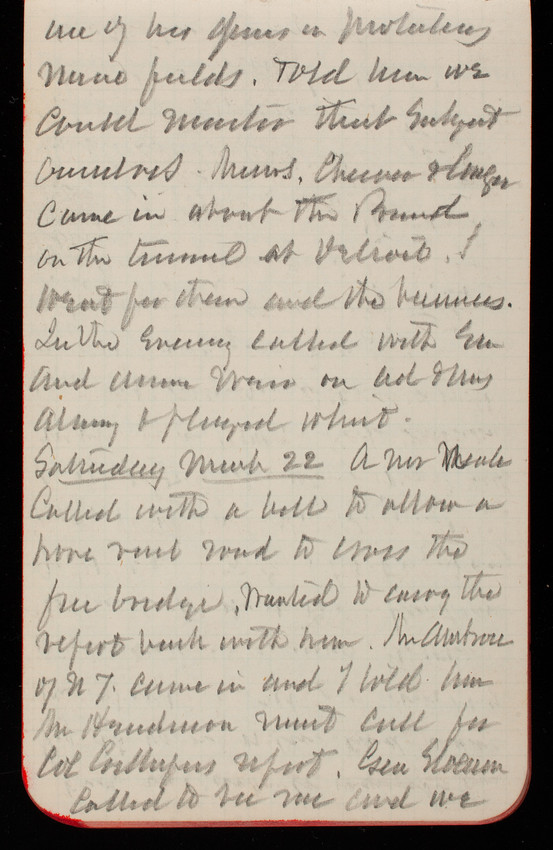 me of his ideas in protecting
mine fields. Told him we
could master that subject
ourselves. Messrs. Cheever &
came in about the Board
on the tunnel at Detroit. I
went for them and the business.
In the Evening called with Em
and on Col & Mrs
& played whist.
Saturday March 22 A Mr
Called with a bill to allow a
rail road to cross the
free bridge, Wanted to carry the
report back with him. Mr Ambrose
of N Y. came in and I told him
Mr Henderson must call for
Col report. Gen Slocum
Called to see me and we